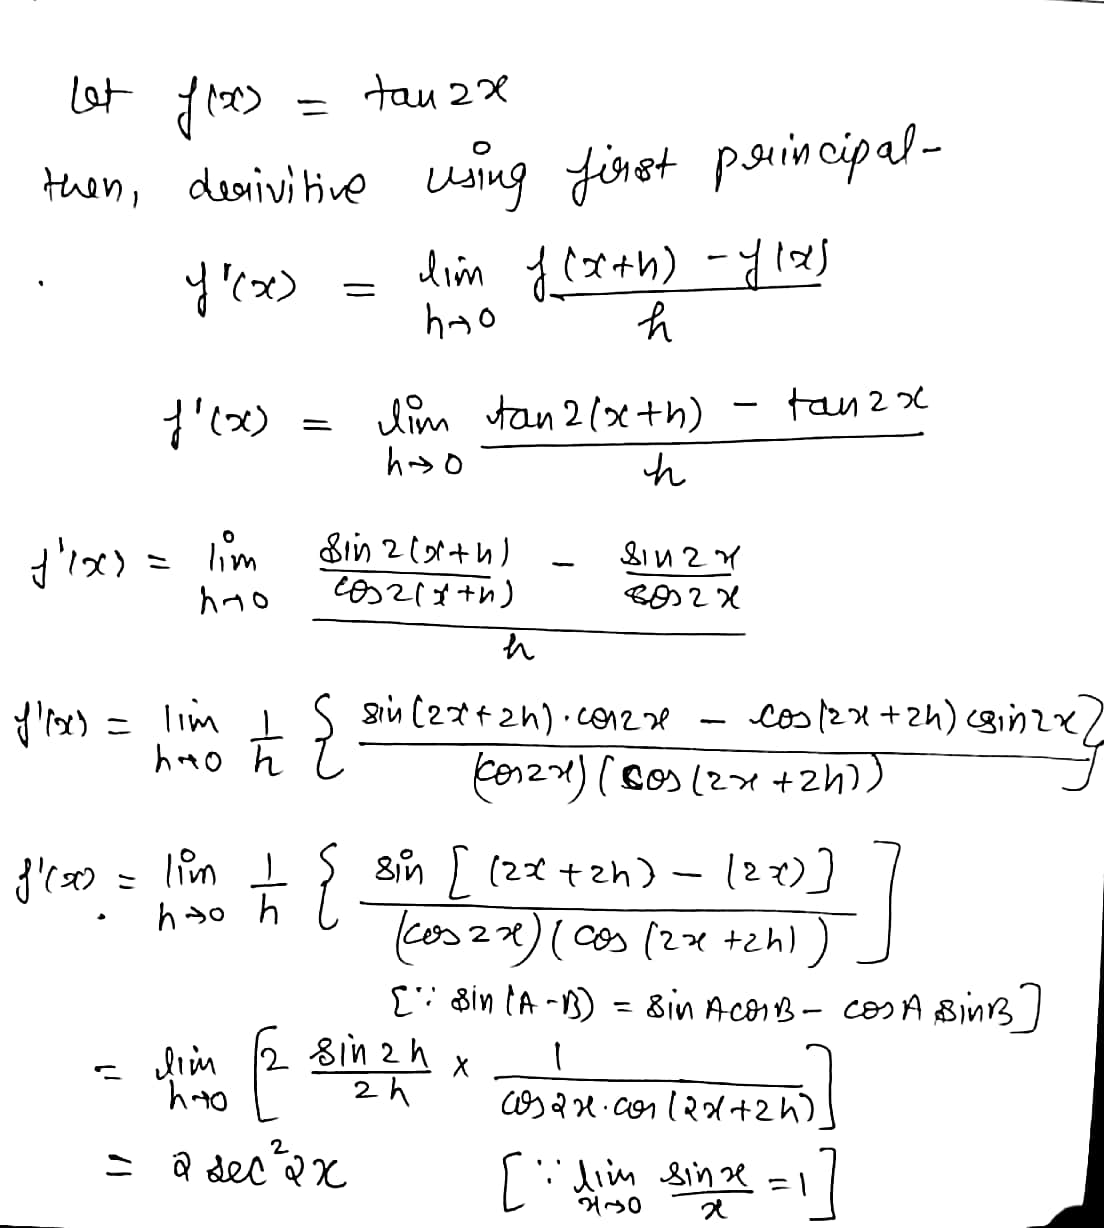 Let f(x) = tan 2x
then, derivitive using first principal-
f'(x) = lim h→0 f(x+h) - f(x) / h
f'(x) = lim h→0 tan 2(x+h) - tan 2x / h
f'(x) = lim h→0 sin 2(x+h) / cos 2(x+h) - sin 2x / cos 2x / h
f'(x) = lim h→0 1/h { sin (2x+2h) . cos 2x - cos (2x+2h) sin 2x / (cos 2x) (cos (2x+2h)) }
f'(x) = lim h→0 1/h { sin [ (2x+2h) - (2x) ] / (cos 2x) (cos (2x+2h)) ]
[∵ sin (A-B) = sin A cos B - cos A sin B]
= lim h→0 [ 2 sin 2h / 2h × 1 / cos 2x . cos (2x+2h) ]
= 2 sec² 2x [∵ lim x→0 sin x / x = 1]